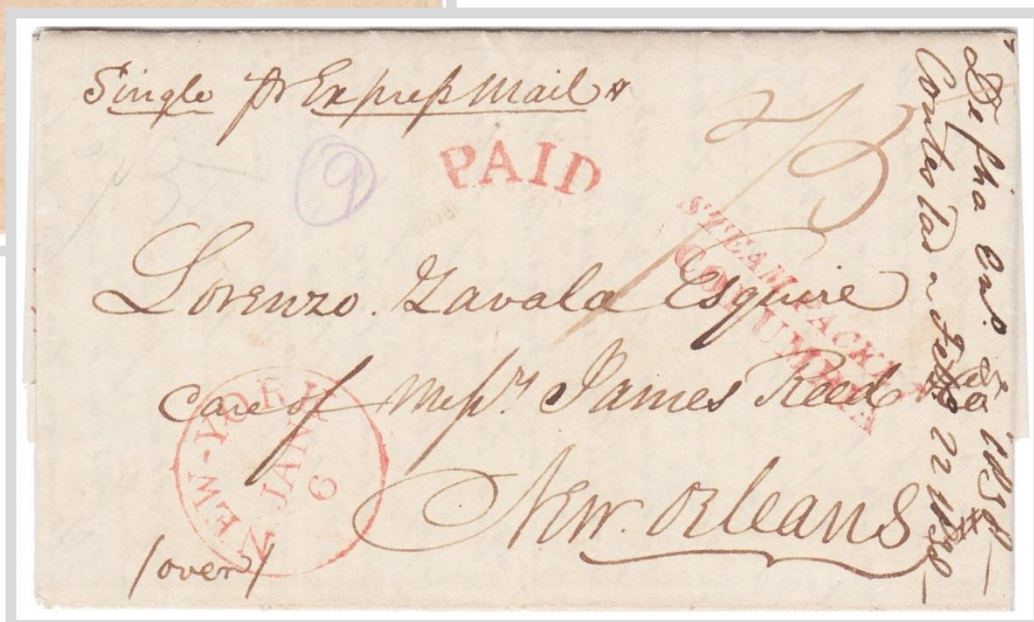 Single pr Expreſs Mail
2
PAID
STEAM PACKET
COLUMBIA
Lorenzo. Zavala Esquire
care of Meſsrs. James Reed
New. Orleans
NEW-YORK
JAN
6
/over/
Contestada Feb 22 1838